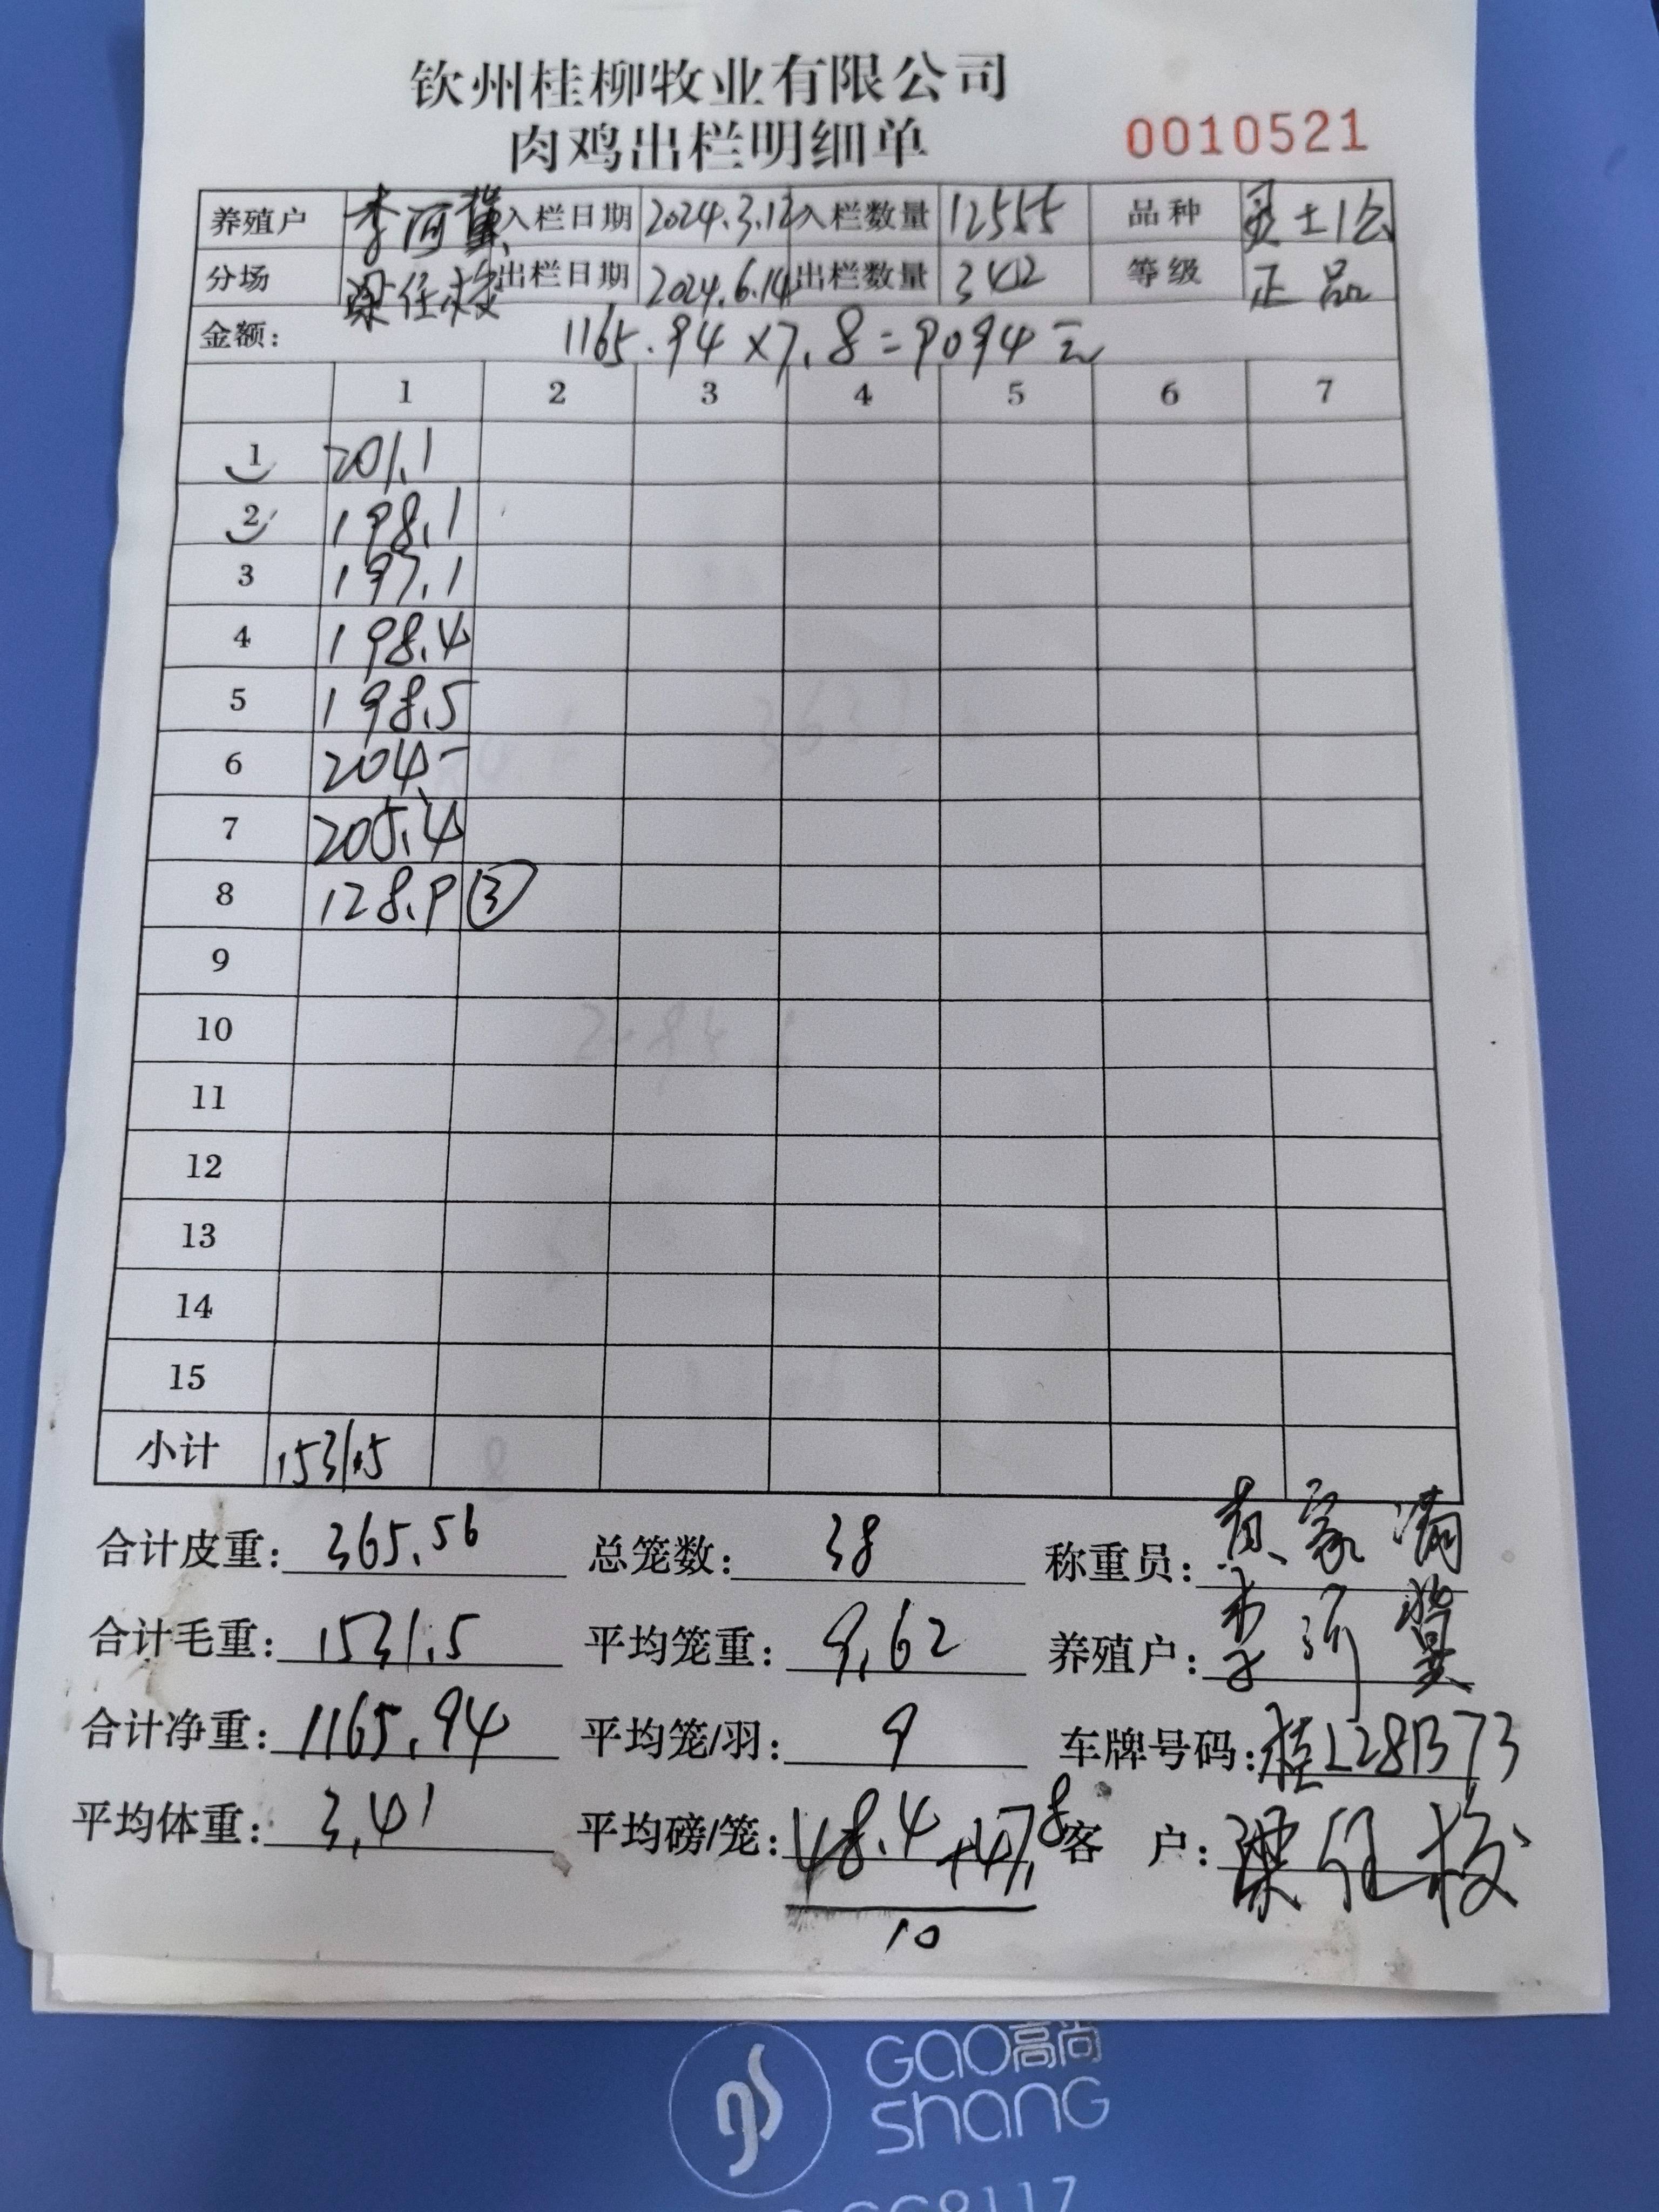 钦州桂柳牧业有限公司
肉鸡出栏明细单 0010521
养殖户 李 入栏日期 2024.3.12 入栏数量 12555 品种 土1公
分场 梁任 出栏日期 2024.6.14 出栏数量 342 等级 正品
金额: 1165.94×7.8=9094元
1 2 3 4 5 6 7
1 201.1
2 198.1
3 197.1
4 198.4
5 198.5
6 204-
7 205.4
8 128.9 ③
9
10
11
12
13
14
15
小计 1531.5
合计皮重: 365.56 总笼数: 38 称重员: 黄家满
合计毛重: 1531.5 平均笼重: 9.62 养殖户: 李
合计净重: 1165.94 平均笼/羽: 9 车牌号码: 桂L28B73
平均体重: 3.41 平均磅/笼: 48.4+47.8 客 户: 梁任
10
GAO高尚
shang